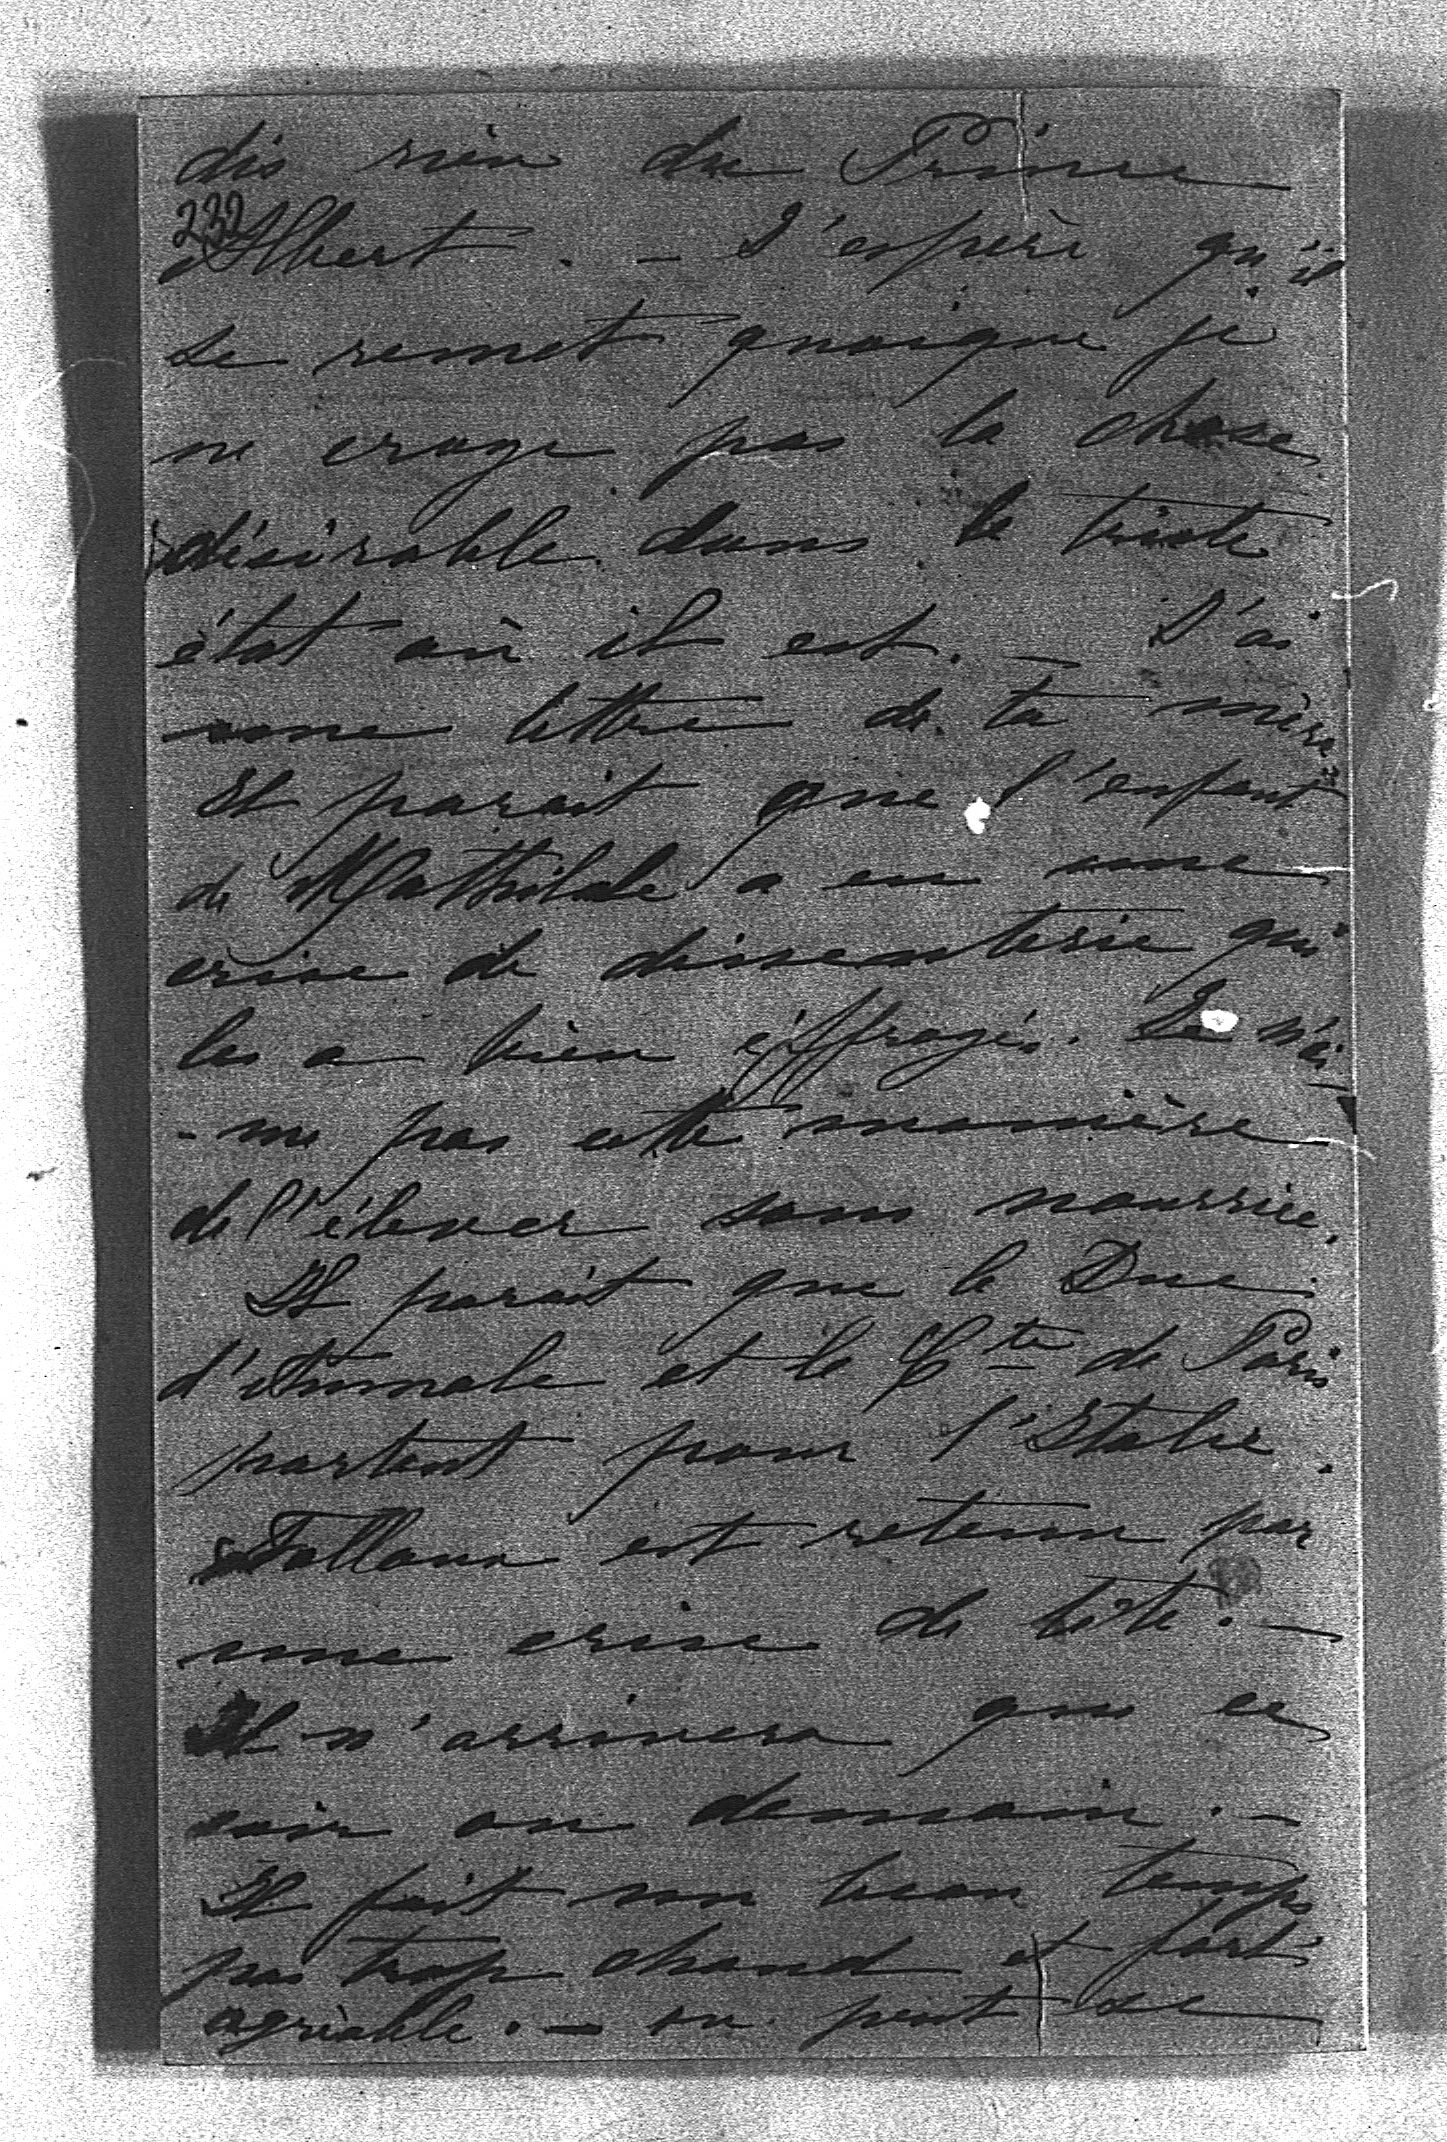 dis rien du Prince
232
Albert. — J'espère qu'il
se remet quoique je
ne croye pas la chose
désirable dans le triste
état où il est. — J'ai
une lettre de ta mère
Il parait que l'enfant
de Mathilde a eu une
crise de dissenterie qui
les a bien éffrayés. Je n'ai-
-me pas cette manière
de l'élever sans nourrice.
Il parait que le Duc
d'Aumale et le Cte de Paris
partent pour l'Italie.
est retenu par
une crise de tête. —
Il n'arrivera que ce
soir ou demain. —
Il fait un beau temps
pas trop chaud et fort
agréable. — on peut se